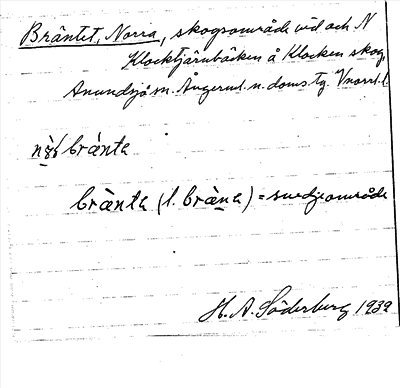 Bräntet, Norra, skogsområde vid och N
Klocktjärnbäcken å Klocken skog,
Anundsjö sn. Ångerml. n. doms. tg. Vnorrl. l.
brànta
brànta (l. bràna) = svedjeområde
H. A. Söderberg 1939